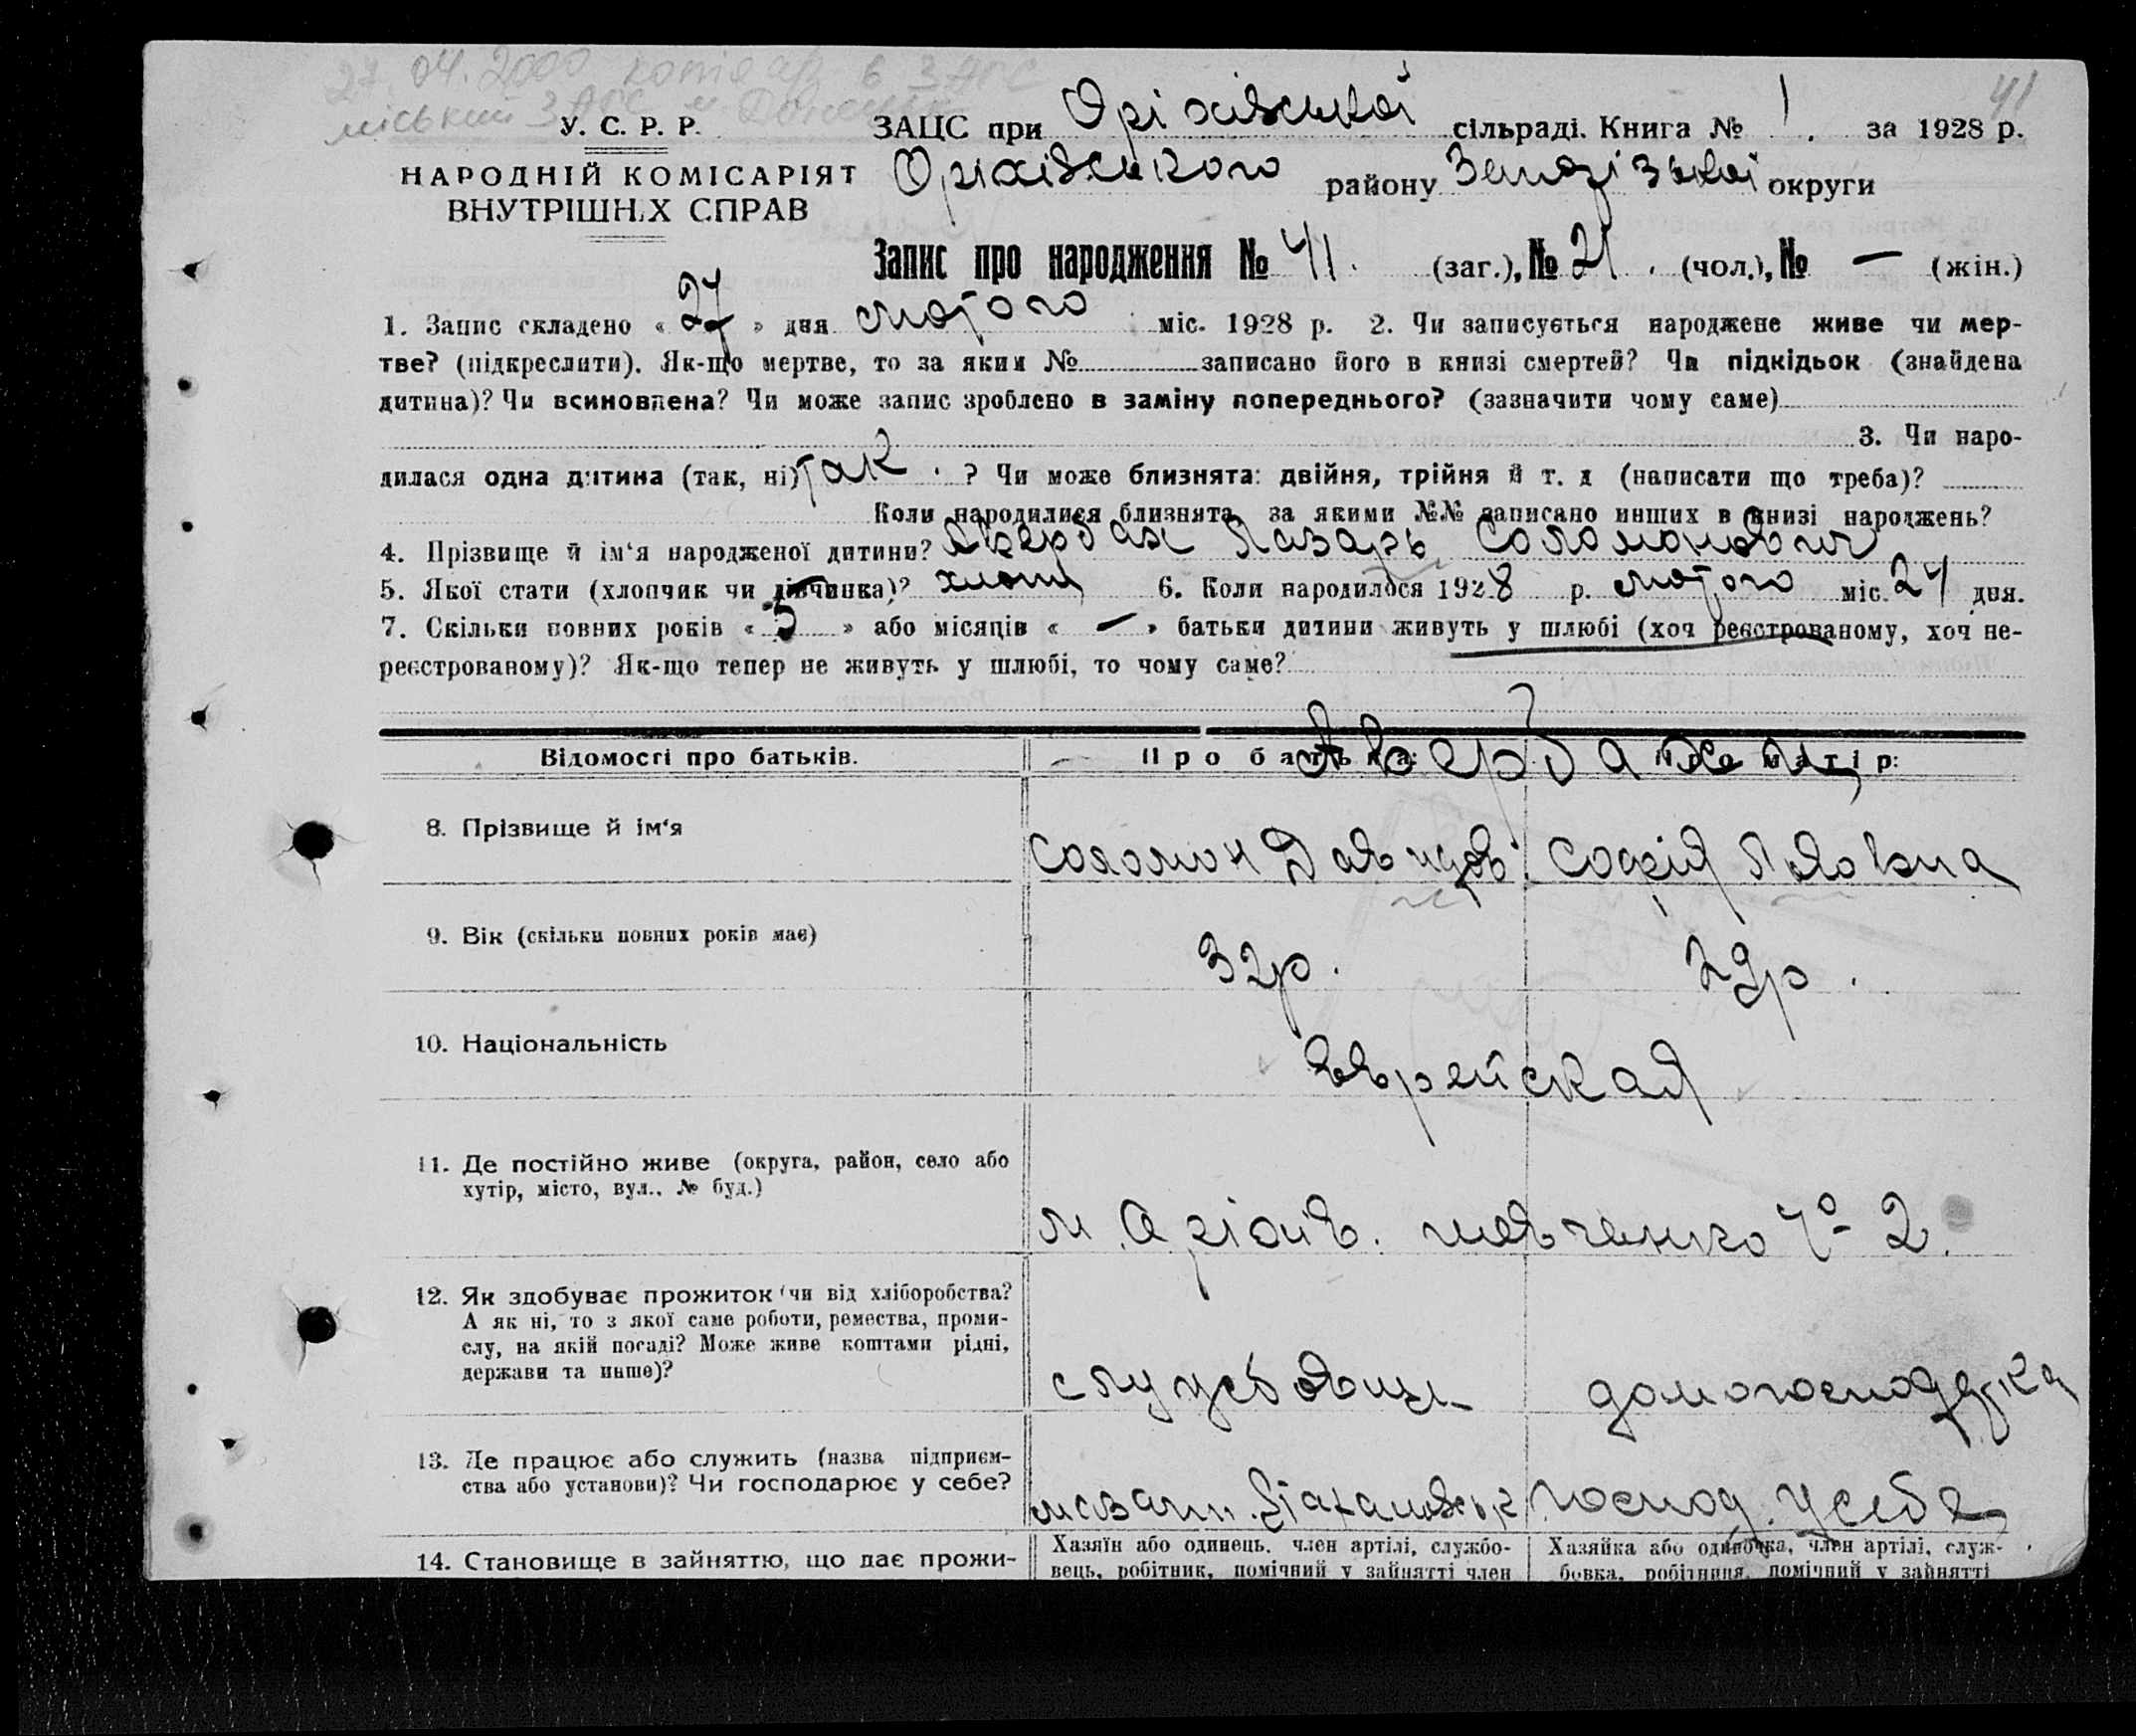 27.04.2000 копія
міський ЗАГС м Донецьк
41
У. С. Р. Р.
ЗАЦС при Оріхівської сільраді. Книга № 1. за 1928 р.
НАРОДНІЙ КОМІСАРІЯТ
ВНУТРІШНІХ СПРАВ
Оріхівського району Запорізької округи
Запис про народження № 41. (заг.), № 21. (чол.), № — (жін.)
1. Запис складено « 27 » дня лютого міс. 1928 р. 2. Чи записується народжене живе чи мер-
тве? (підкреслити). Як-що мертве, то за яким № записано його в книзі смертей? Чи підкідьок (знайдена
дитина)? Чи всиновлена? Чи може запис зроблено в заміну попереднього? (зазначити чому саме)
3. Чи наро-
дилася одна дитина (так, ні) так. ? Чи може близнята: двійня, трійня й т. д (написати що треба)?
Коли народилися близнята, за якими №№ записано инших в книзі народжень?
4. Прізвище й ім'я народженої дитини? Авербах Лазарь Соломонович
5. Якої стати (хлопчик чи дівчинка)? хлопц 6. Коли народилося 1928 р. лютого міс. 24 дня.
7. Скільки повних років « 5 » або місяців « — » батьки дитини живуть у шлюбі (хоч реєстрованому, хоч не-
реєстрованому)? Як-що тепер не живуть у шлюбі, то чому саме?
Відомості про батьків. Про батька: Про матір:
8. Прізвище й ім'я
Соломон Давидов Софія Львовна
9. Вік (скільки повних років має)
32р. 29р.
10. Національність
Еврейская
11. Де постійно живе (округа, район, село або
хутір, місто, вул., № буд.)
м. Оріхів. Шевченко № 2.
12. Як здобуває прожиток (чи від хліборобства?
А як ні, то з якої саме роботи, ремества, проми-
слу, на якій посаді? Може живе коштами рідні,
держави та инше)?
службовець домогосподарка
13. Де працює або служить (назва підприєм-
ства або установи)? Чи господарює у себе?
господ. у себе
14. Становище в зайняттю, що дає прожи-
Хазяїн або одинець, член артілі, службо-
вець, робітник, помічний у зайнятті член
Хазяйка або одиночка, член артілі, служ-
бовка, робітниця, помічний у зайнятті